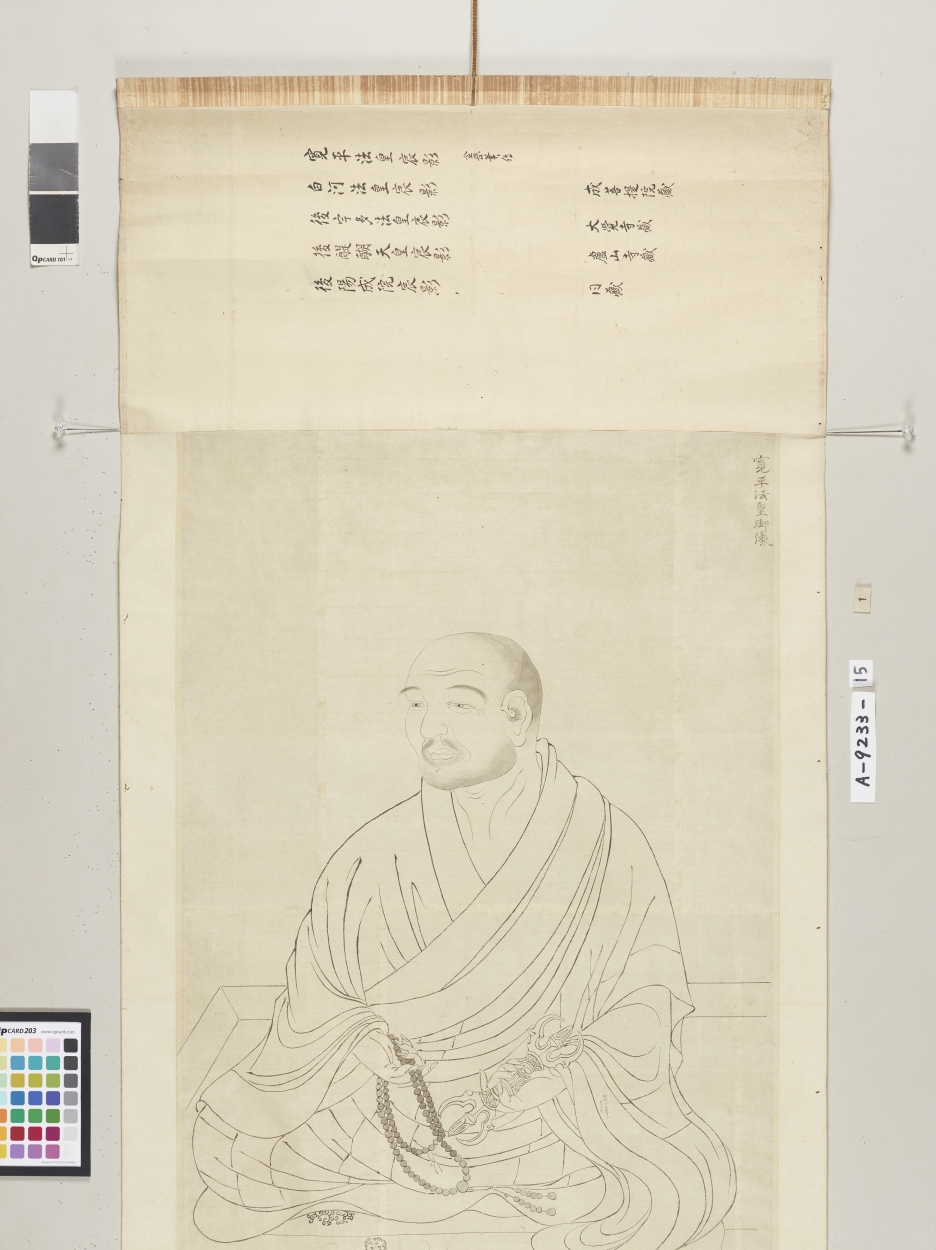 寛平法皇宸影
白河法皇宸影 成菩提院藏
後宇多法皇宸影 大覺寺藏
後醍醐天皇宸影 廬山寺藏
後陽成院宸影 同藏
寛平法皇御像
QPCARD 101
1
A-9233-15
QPCARD203 www.qpcard.com